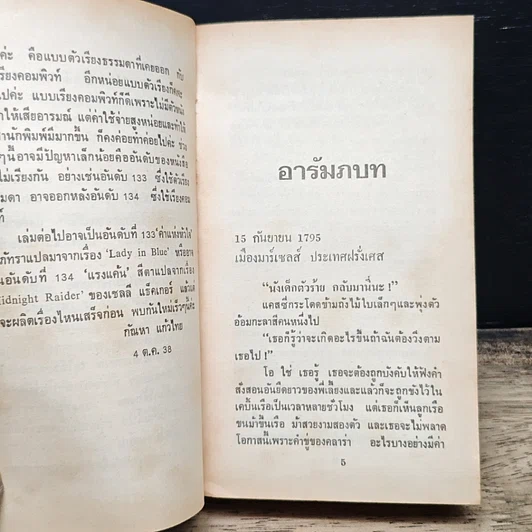 ไปค่ะ คือแบบตัวเรียงธรรมดาที่เคยออก กับ
เรียงคอมพิวท์ อีกหน่อยแบบตัวเรียงก็
ไปค่ะ แบบเรียงคอมพิวท์ก็ดีเพราะไม่มีตัวหนัง
ให้เสียอารมณ์ แต่ค่าใช้จ่ายสูงหน่อยและทำให้
นักพิมพ์มีมากขึ้น ก็คงค่อยทำค่อยไปค่ะ ช่วง
นี้อาจมีปัญหาเล็กน้อยคืออันดับของหนังสือ
ไม่เรียงกัน อย่างเช่นอันดับ 133 ซึ่งใช้ตัวเรียง
มดา อาจออกหลังอันดับ 134 ซึ่งใช้เรียงคอม
ท์
เล่มต่อไปอาจเป็นอันดับที่ 133 'ค่าแห่งหัวใจ'
ภัทราแปลมาจากเรื่อง 'Lady in Blue' หรืออาจ
นอันดับที่ 134 'แรงแค้น' สีตาแปลจากเรื่อง
idnight Raider' ของเชลลี แธ็คเกอร์ แล้วแต่
จะผลิตเรื่องไหนเสร็จก่อน พบกันใหม่เร็วๆนี้ค่ะ
กัณหา แก้วไทย
4 ต.ค. 38
อารัมภบท
15 กันยายน 1795
เมืองมาร์เซลส์ ประเทศฝรั่งเศส
"นังเด็กตัวร้าย กลับมานี่นะ !"
แคสซี่กระโดดข้ามถังไม้ใบเล็กๆและพุ่งตัว
อ้อมกะลาสีคนหนึ่งไป
"เธอก็รู้ว่าจะเกิดอะไรขึ้นถ้าฉันต้องวิ่งตาม
เธอไป !"
โอ ใช่ เธอรู้ เธอจะต้องถูกบังคับให้ฟังคำ
สั่งสอนอันยืดยาวของพี่เลี้ยงและแล้วก็จะถูกขังไว้ใน
เคบินเรือเป็นเวลาหลายชั่วโมง แต่เธอก็เห็นลูกเรือ
ขนม้าขึ้นเรือ ม้าสวยงามสองตัว และเธอจะไม่พลาด
โอกาสนี้เพราะคำขู่ของคลาร่า อะไรบางอย่างมีค่า
5